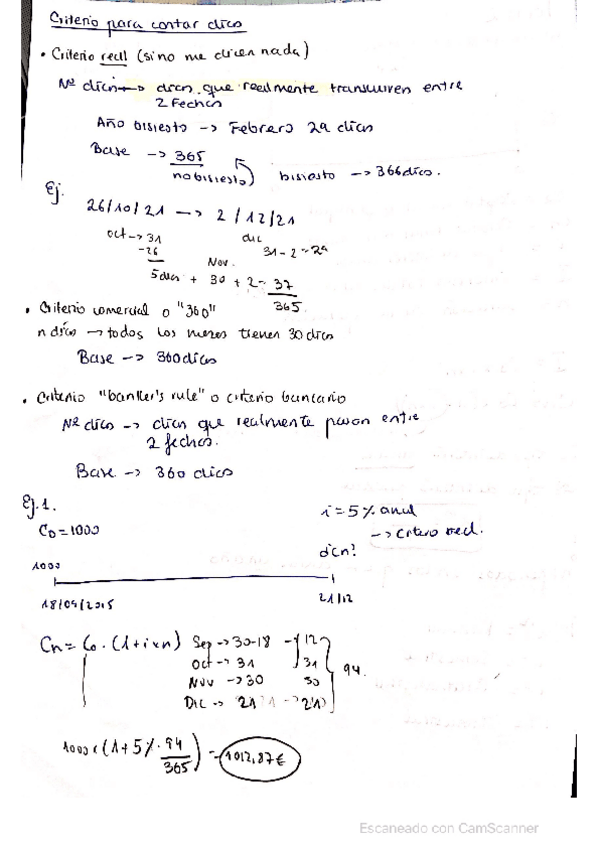 Criterio para contar días
• Criterio real (si no me dicen nada)
Nº días → días que realmente transcurren entre
2 Fechas
Año bisiesto → Febrero 29 días
Base → 365
no bisiesto) bisiesto → 366 días.
Ej.
26/10/21 → 2/12/21
oct → 31 dic
-26 31-2=29
Nov.
5 días + 30 + 2 = 37
365
• Criterio comercial o "360"
n días → todos los meses tienen 30 días
Base → 360 días
• Criterio "banker's rule" o criterio bancario
Nº días → días que realmente pasan entre
2 fechas.
Base → 360 días
Ej. 1. i = 5% anual
C0 = 1000 → criterio real.
¿Cn?
1000
18/09/2015 21/12
Cn = C0 · (1+i×n) Sep → 30-18 - 12
Oct → 31 31
Nov → 30 30 94.
Dic → 21
1000 × (1+5% · 94/365) = 1012,87€
Escaneado con CamScanner